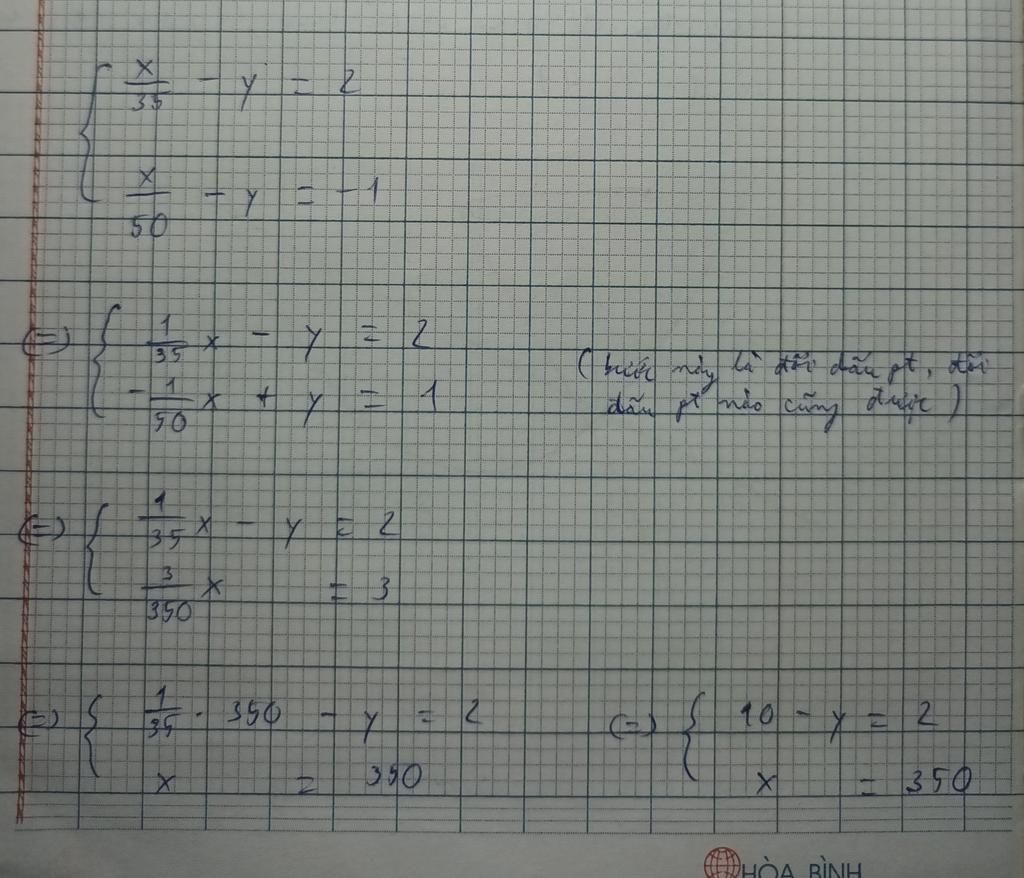 x/35 - y = 2
x/50 - y = -1
(=) { 1/35 x - y = 2
- 1/50 x + y = 1
(bước này là đổi dấu pt, đổi
dấu pt nào cũng được)
(=) { 1/35 x - y = 2
3/350 x = 3
(=) { 1/35 . 350 - y = 2
x = 350
(=) { 10 - y = 2
x = 350
HÒA BÌNH